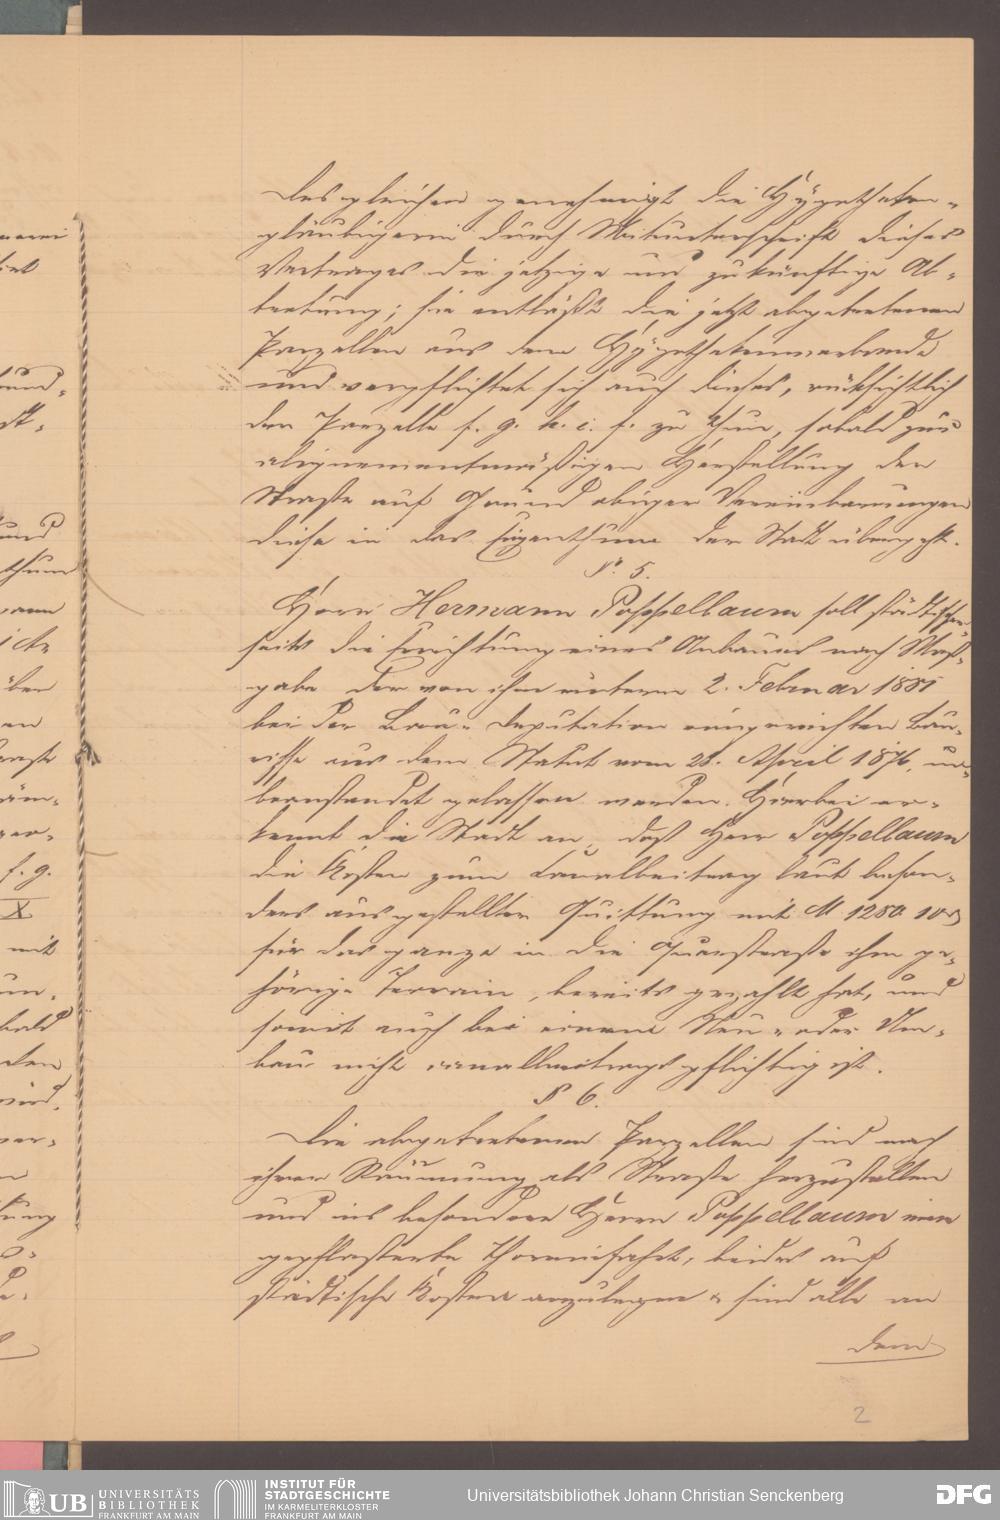 Desgleichen genehmigt die Hypotheken-
gläubigerin durch Mitunterschrift dieses
Vertrages die jetzige und zukünftige Ab-
tretung; sie entläßt die jetzt abgetretenen
Parzellen aus dem Hypothekenverbande
und verpflichtet sich auch dieses, rücksichtlich
der Parzelle f. g. h. i. f. zu thun, sobald zur
alignementmäßigen Herstellung der
Straße auf Grund obiger Vereinbarungen
diese in das Eigenthum der Stadt übergeht.
§. 5.
Herrn Hermann Poppelbaum soll städtischer-
seits die Errichtung eines Anbaues nach Maß-
gabe der von ihm unterm 2. Februar 1881
bei der Bau-Deputation eingereichten Bau-
risse aus dem Statut vom 28. April 1876, un-
beanstandet gelassen werden. Hierbei er-
kennt die Stadt an, daß Herr Poppelbaum
die Kosten zum Canalbeitrag laut beson-
ders ausgestellter Quittung mit M 1280. 10 ₰
für das ganze in die Querstraße ihm ge-
hörige Terrain, bereits gezahlt hat, und
somit auch bei einem Neu- oder Um-
bau nicht canalbeitragspflichtig ist.
§ 6.
Die abgetretenen Parzellen sind nach
ihrer Räumung als Straße herzustellen
und ins besondere Herrn Poppelbaum eine
gepflasterte Thoreinfahrt, beides auf
städtische Kosten anzulegen & sind alle an
dem
2
UB UNIVERSITÄTS
BIBLIOTHEK
FRANKFURT AM MAIN
INSTITUT FÜR
STADTGESCHICHTE
IM KARMELITERKLOSTER
FRANKFURT AM MAIN
Universitätsbibliothek Johann Christian Senckenberg
DFG